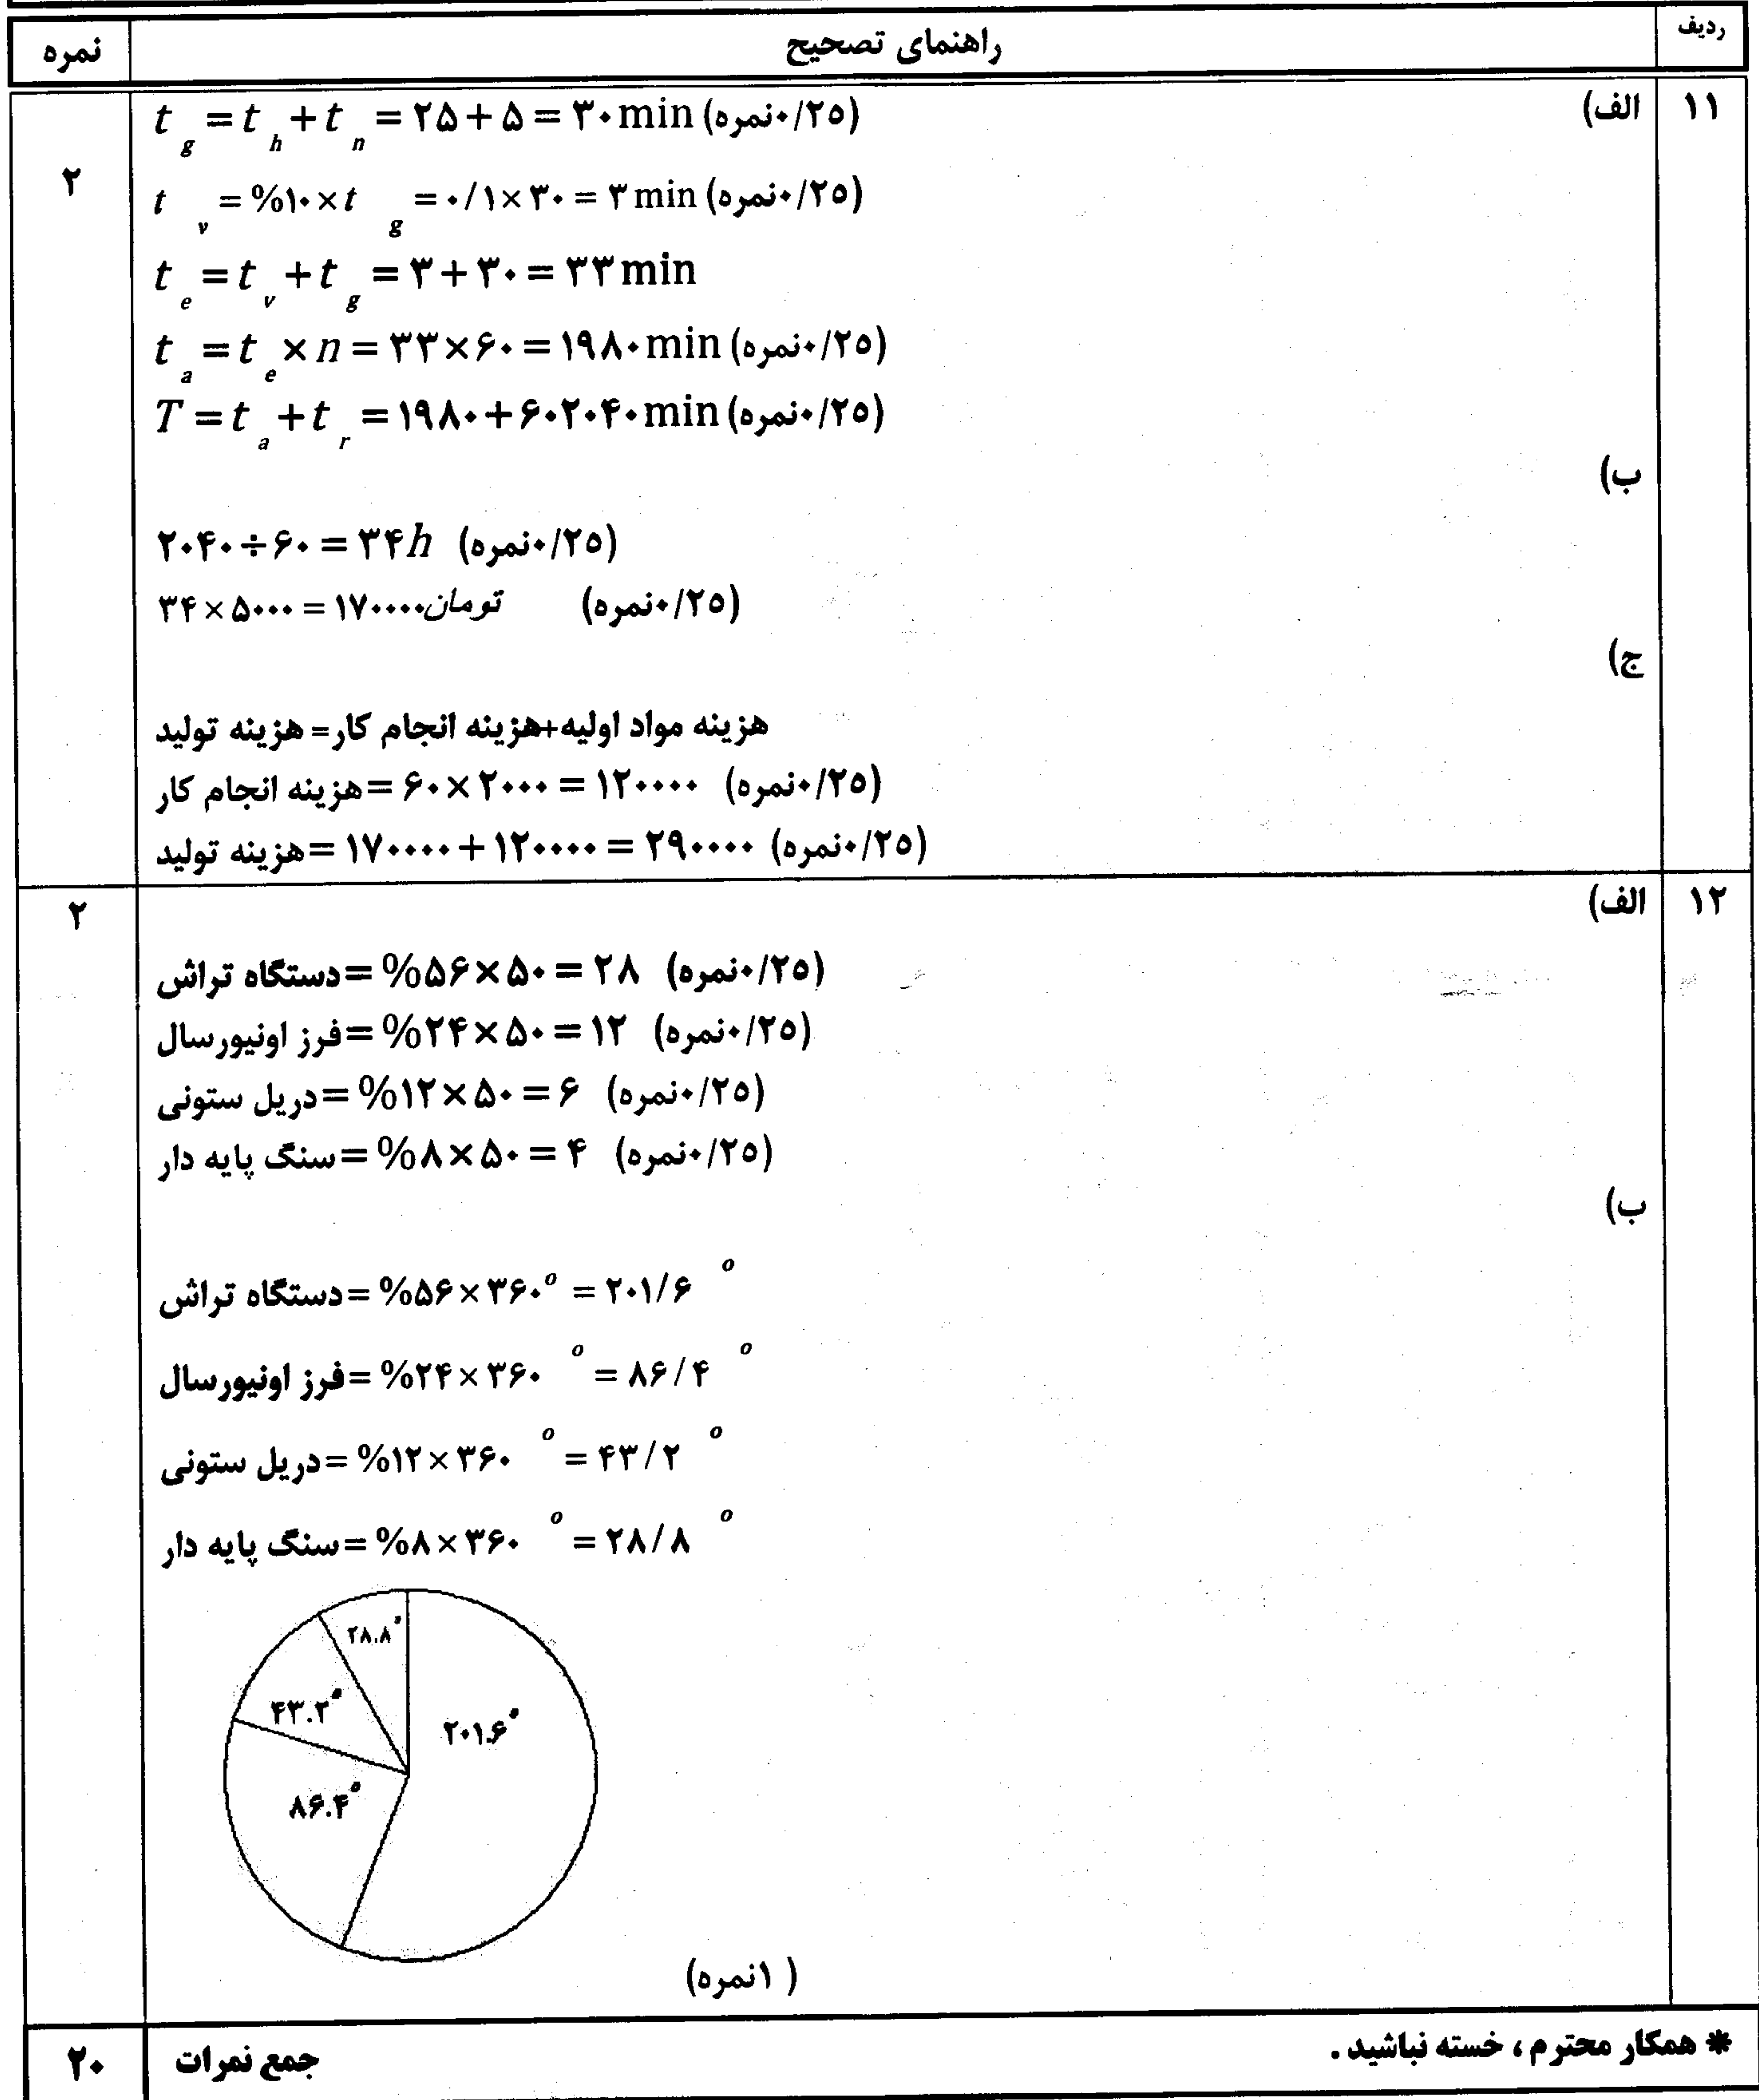 ردیف راهنمای تصحیح نمره
۱۱ الف) ۲
t g = t h + t n = ۲۵ + ۵ = ۳۰ min (۰/۲۵نمره)
t v = %۱۰ × t g = ۰/۱ × ۳۰ = ۳ min (۰/۲۵نمره)
t e = t v + t g = ۳ + ۳۰ = ۳۳ min
t a = t e × n = ۳۳ × ۶۰ = ۱۹۸۰ min (۰/۲۵نمره)
T = t a + t r = ۱۹۸۰ + ۶۰۲۰۴۰ min (۰/۲۵نمره)
ب)
۲۰۴۰ ÷ ۶۰ = ۳۴h (۰/۲۵نمره)
۳۴ × ۵۰۰۰ = ۱۷۰۰۰۰تومان (۰/۲۵نمره)
ج)
هزینه مواد اولیه+هزینه انجام کار= هزینه تولید
هزینه انجام کار= ۶۰ × ۲۰۰۰ = ۱۲۰۰۰۰ (۰/۲۵نمره)
هزینه تولید= ۱۷۰۰۰۰ + ۱۲۰۰۰۰ = ۲۹۰۰۰۰ (۰/۲۵نمره)
۱۲ الف) ۲
دستگاه تراش= %۵۶ × ۵۰ = ۲۸ (۰/۲۵نمره)
فرز اونیورسال= %۲۴ × ۵۰ = ۱۲ (۰/۲۵نمره)
دریل ستونی= %۱۲ × ۵۰ = ۶ (۰/۲۵نمره)
سنگ پایه دار= %۸ × ۵۰ = ۴ (۰/۲۵نمره)
ب)
دستگاه تراش= %۵۶ × ۳۶۰° = ۲۰۱/۶°
فرز اونیورسال= %۲۴ × ۳۶۰° = ۸۶/۴°
دریل ستونی= %۱۲ × ۳۶۰° = ۴۳/۲°
سنگ پایه دار= %۸ × ۳۶۰° = ۲۸/۸°
۲۸.۸°
۴۳.۲°
۲۰۱.۶°
۸۶.۴°
(۱نمره)
* همکار محترم ، خسته نباشید . جمع نمرات ۲۰